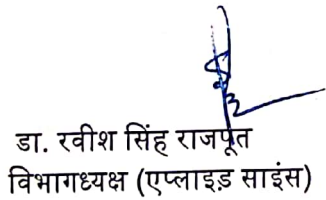 डा. रवीश सिंह राजपूत
विभागध्यक्ष (एप्लाइड़ साइंस)